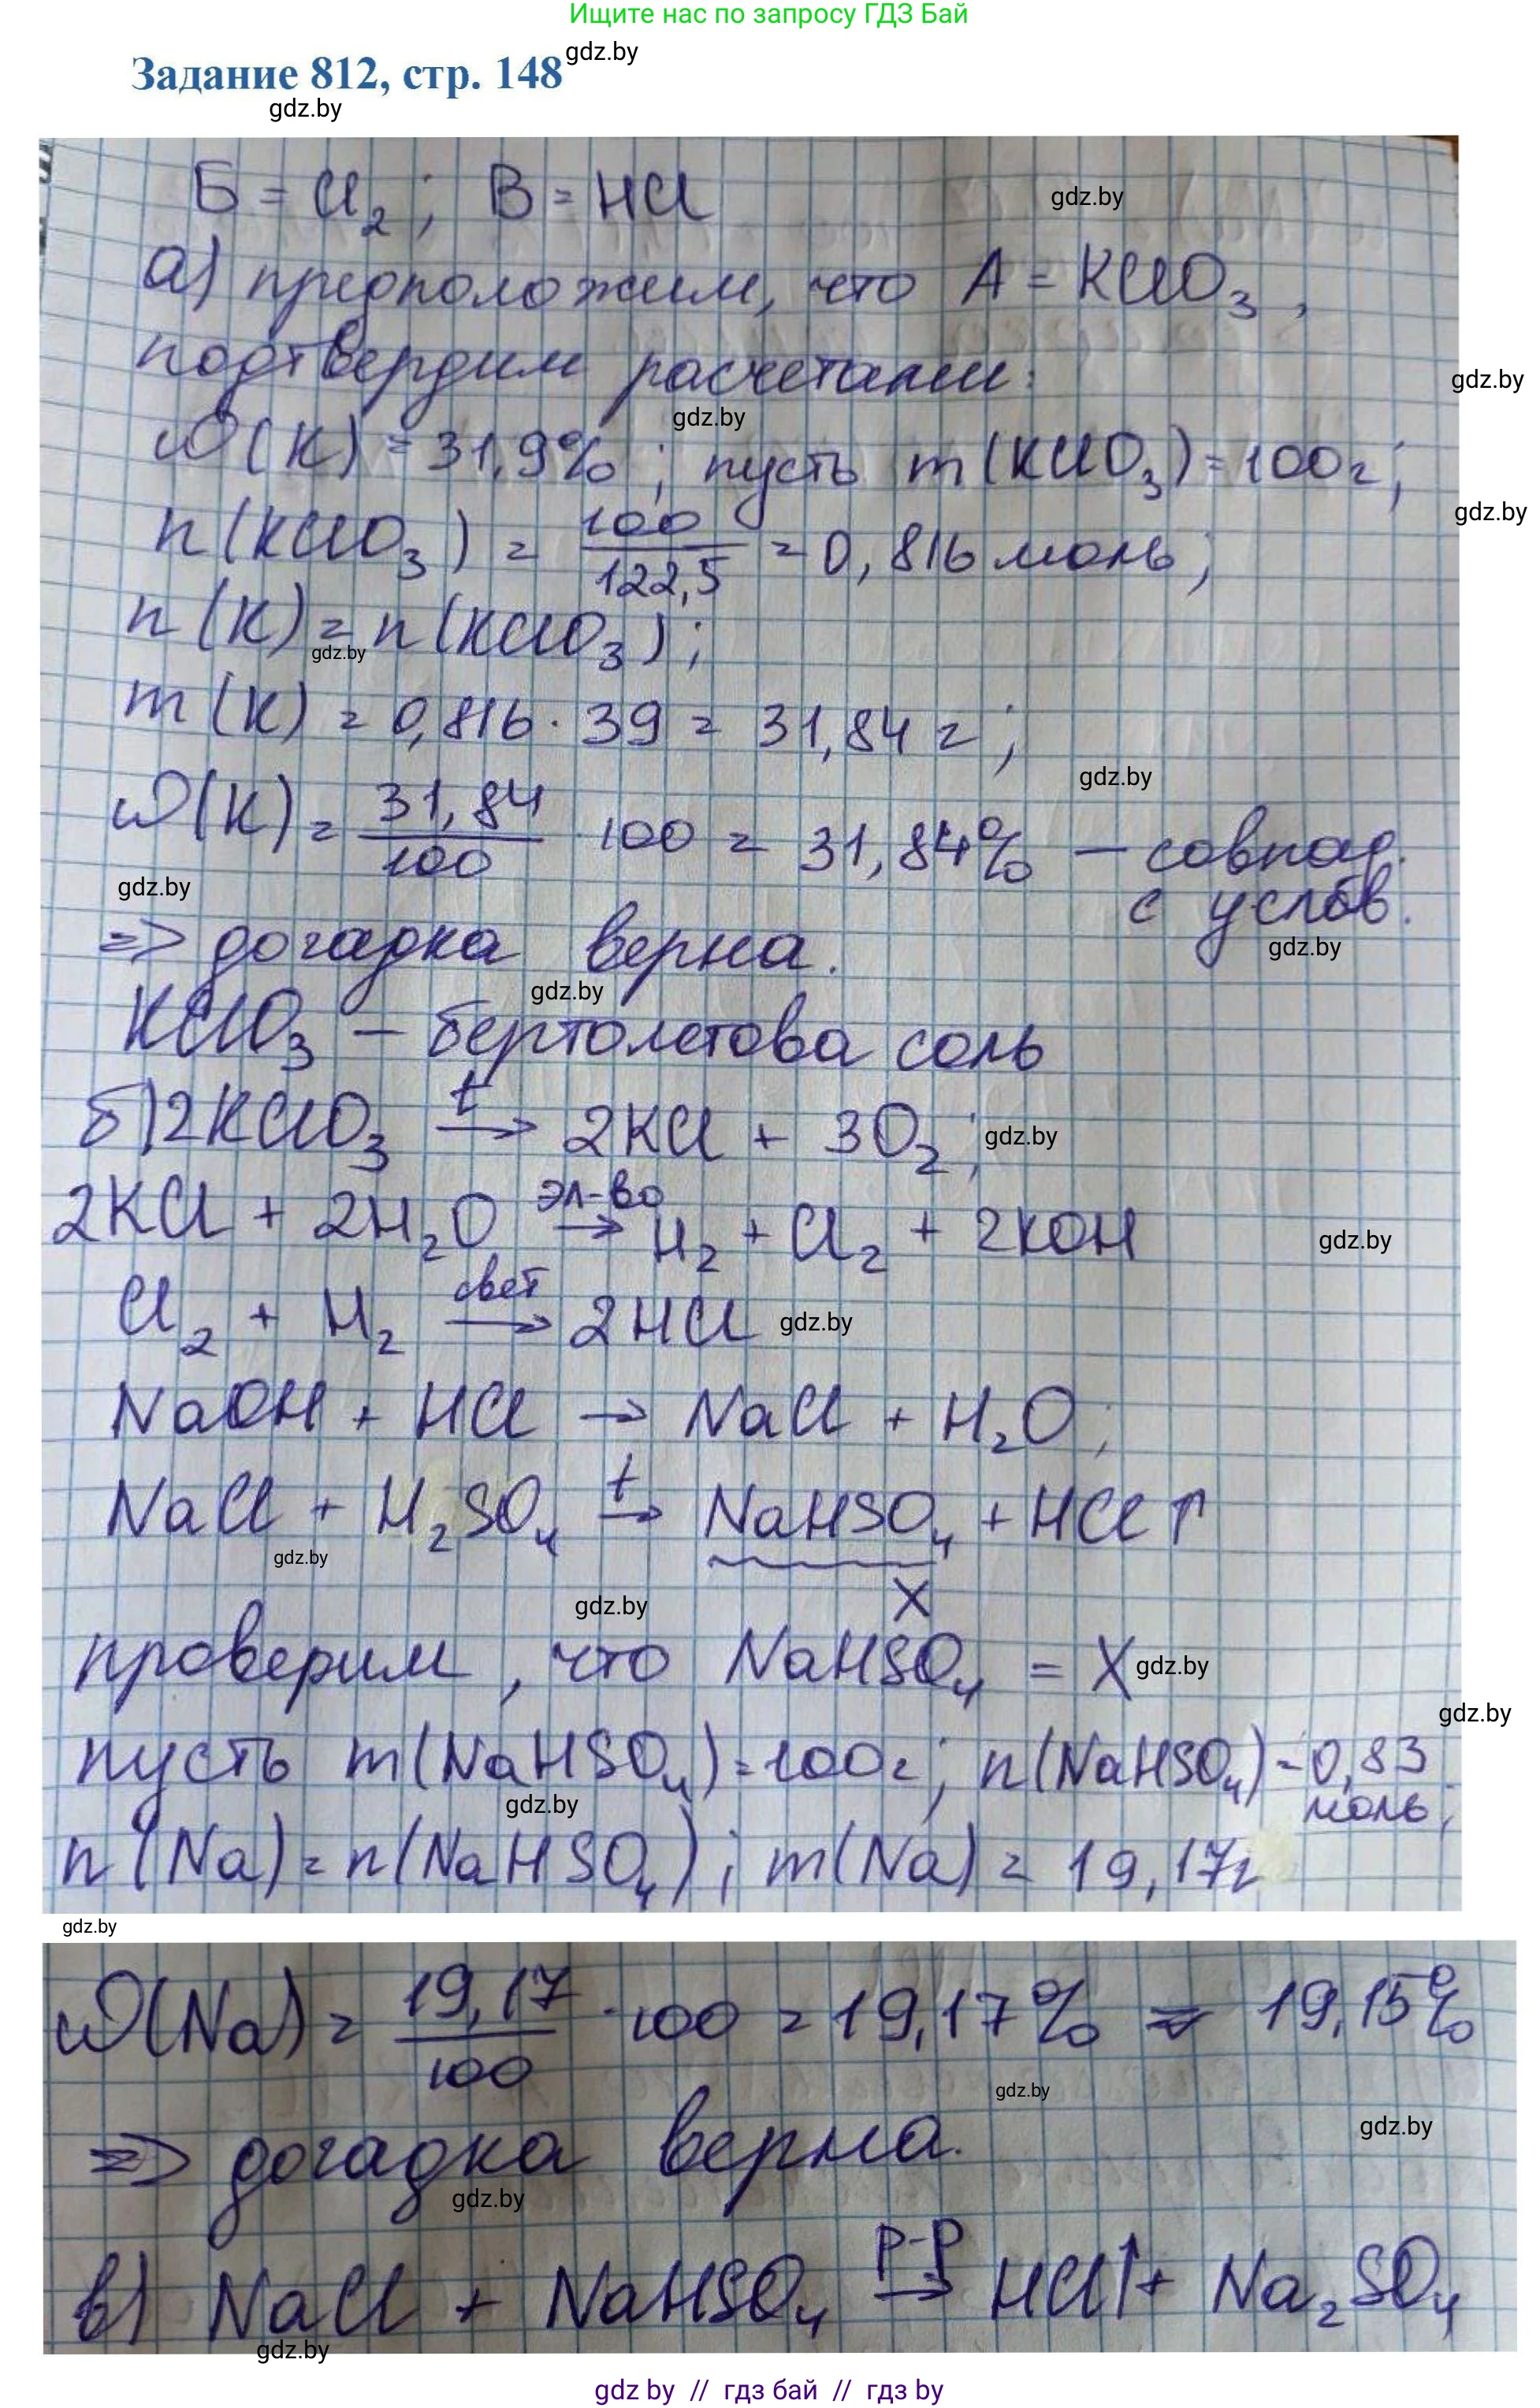 Ищите нас по запросу ГДЗ Бай
Задание 812, стр. 148
gdz.by
gdz.by
Б = Cl₂; В = HCl
gdz.by
а) предположим, что А = KClO₃,
подтвердим расчетами:
gdz.by
gdz.by
ω(K) = 31,9%; пусть m(KClO₃) = 100г;
gdz.by
n(KClO₃) = 100/122,5 = 0,816 моль;
n(K) = n(KClO₃);
gdz.by
m(K) = 0,816 · 39 = 31,84 г;
gdz.by
ω(K) = 31,84/100 · 100 = 31,84% – совпад.
с услов.
gdz.by
gdz.by
=> догадка верна.
gdz.by
KClO₃ – бертолетова соль
б) 2KClO₃ t→ 2KCl + 3O₂;
gdz.by
2KCl + 2H₂O эл-во→ H₂ + Cl₂ + 2KOH
gdz.by
Cl₂ + H₂ свет→ 2HCl
gdz.by
NaOH + HCl → NaCl + H₂O;
NaCl + H₂SO₄ t→ NaHSO₄ + HCl↑
gdz.by
X
gdz.by
проверим, что NaHSO₄ = X
gdz.by
gdz.by
пусть m(NaHSO₄) = 100г; n(NaHSO₄) = 0,83
моль;
gdz.by
n(Na) = n(NaHSO₄); m(Na) = 19,17г
gdz.by
ω(Na) = 19,17/100 · 100 = 19,17% = 19,15%
gdz.by
gdz.by
=> догадка верна.
gdz.by
в) NaCl + NaHSO₄ р-р→ HCl↑ + Na₂SO₄
gdz.by
gdz by // гдз бай // гдз by